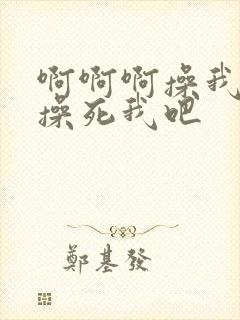 啊啊啊操我
操死我吧
鄭基發